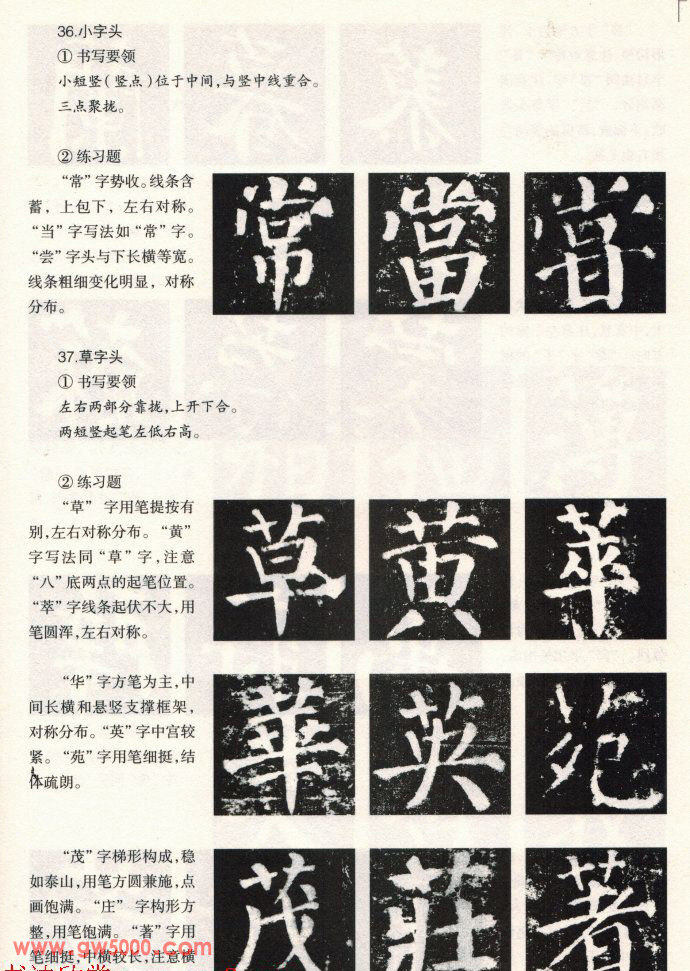 36.小字头
① 书写要领
小短竖(竖点)位于中间,与竖中线重合。
三点聚拢。
② 练习题
“常”字势收。线条含
蓄，上包下，左右对称。
“当”字写法如“常”字。
“尝”字头与下长横等宽。
线条粗细变化明显，对称
分布。
常 當 甞
37.草字头
① 书写要领
左右两部分靠拢,上开下合。
两短竖起笔左低右高。
② 练习题
“草” 字用笔提按有
别,左右对称分布。“黄”
字写法同“草”字,注意
“八”底两点的起笔位置。
“萃”字线条起伏不大,用
笔圆浑,左右对称。
草 黄 萃
“华”字方笔为主,中
间长横和悬竖支撑框架,
对称分布。“英”字中宫较
紧。“苑”字用笔细挺,结
体疏朗。
華 英 苑
“茂”字梯形构成,稳
如泰山,用笔方圆兼施,点
画饱满。“庄” 字构形方
整,用笔饱满。“著”字用
笔细挺,中横较长,注意横
茂 莊 著
www.gw5000.com